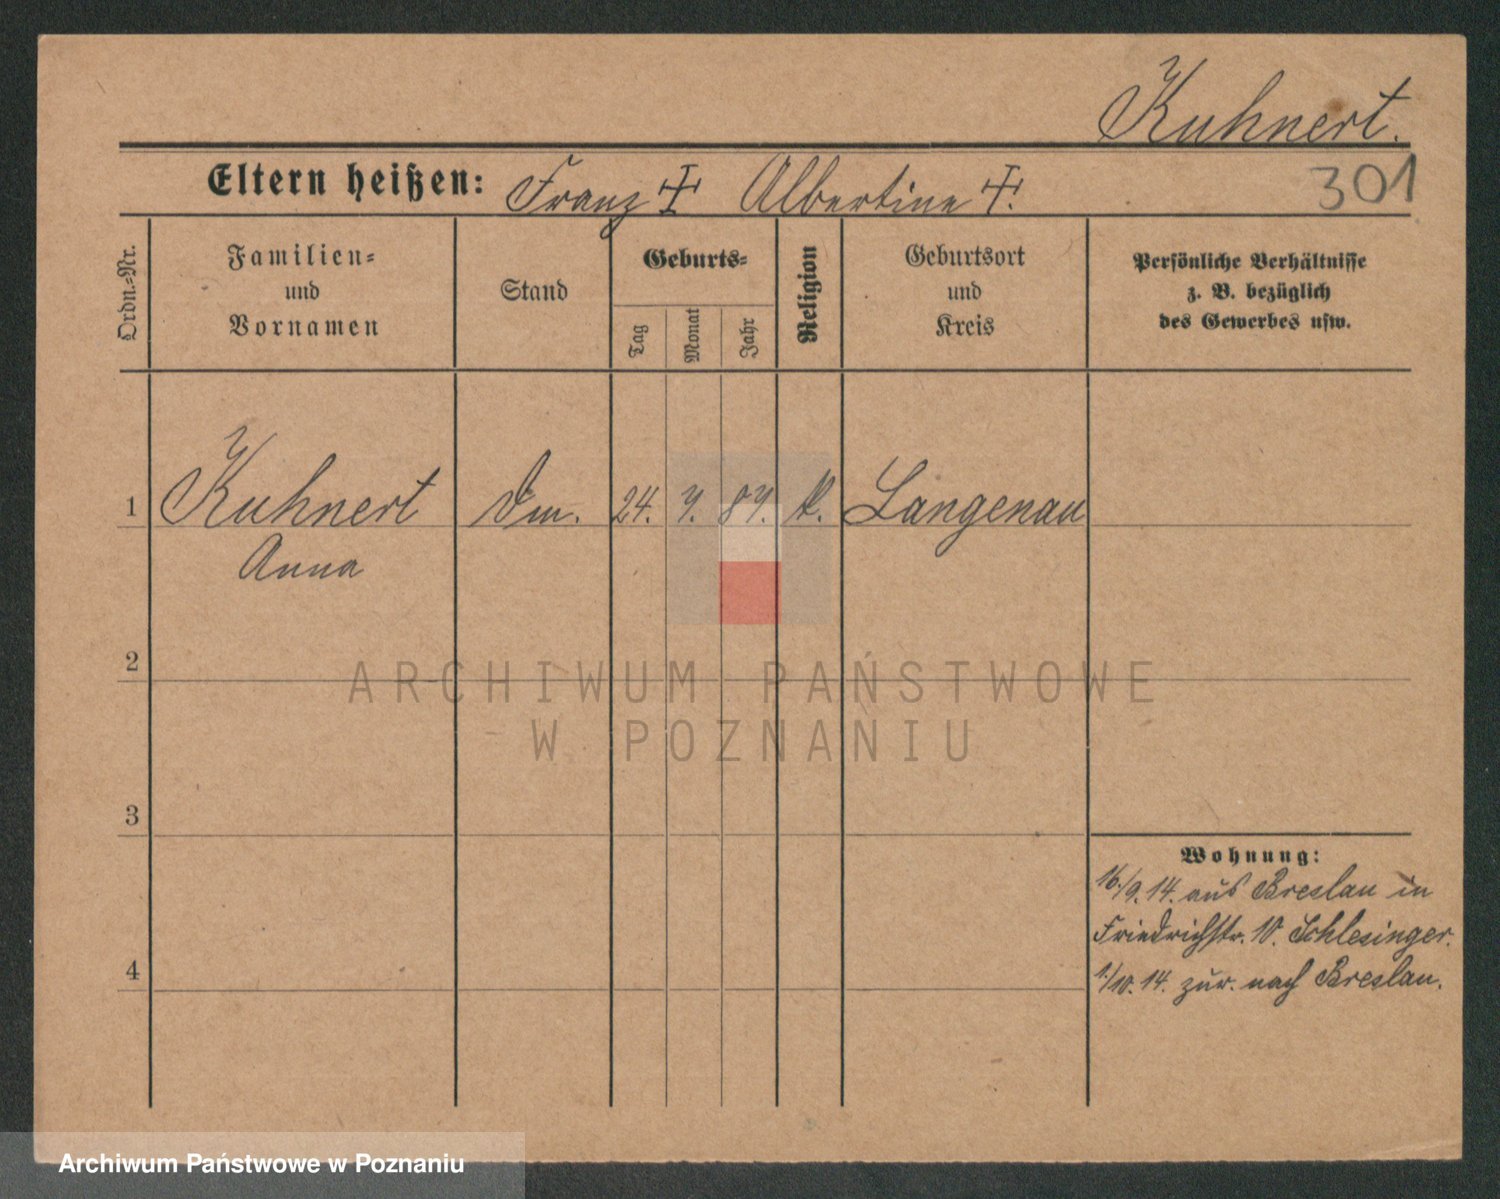 Kuhnert.
Eltern heißen: Franz † Albertine †.
301
Ordn.=Nr.
Familien=
und
Vornamen
Stand
Geburts=
Tag
Monat
Jahr
Religion
Geburtsort
und
Kreis
Persönliche Verhältnisse
z. B. bezüglich
des Gewerbes usw.
1 Kuhnert Dm. 24. 7. 87. k. Langenau
Anna
2
ARCHIWUM PAŃSTWOWE
W POZNANIU
3
Wohnung:
16./9. 14. aus Breslau in
Friedrichstr. 10. Schlesinger.
4
1./10. 14. zur. nach Breslau.
Archiwum Państwowe w Poznaniu